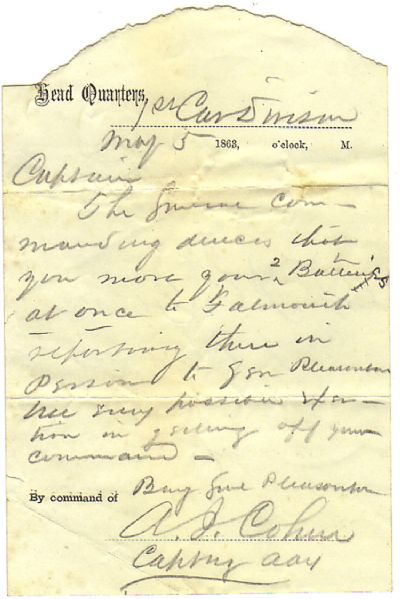 Head Quarters, 1st Cav Division
May 5 1863, o'clock, M.
Captain
The General Com-
manding desires that
you move your 2 Batteries
at once to Falmouth
reporting there in
Person to Gen Pleasonton
Use every possible Exer-
tion in getting off your
command -
By command of Brig Genl Pleasonton
A. J. Cohen
Capt